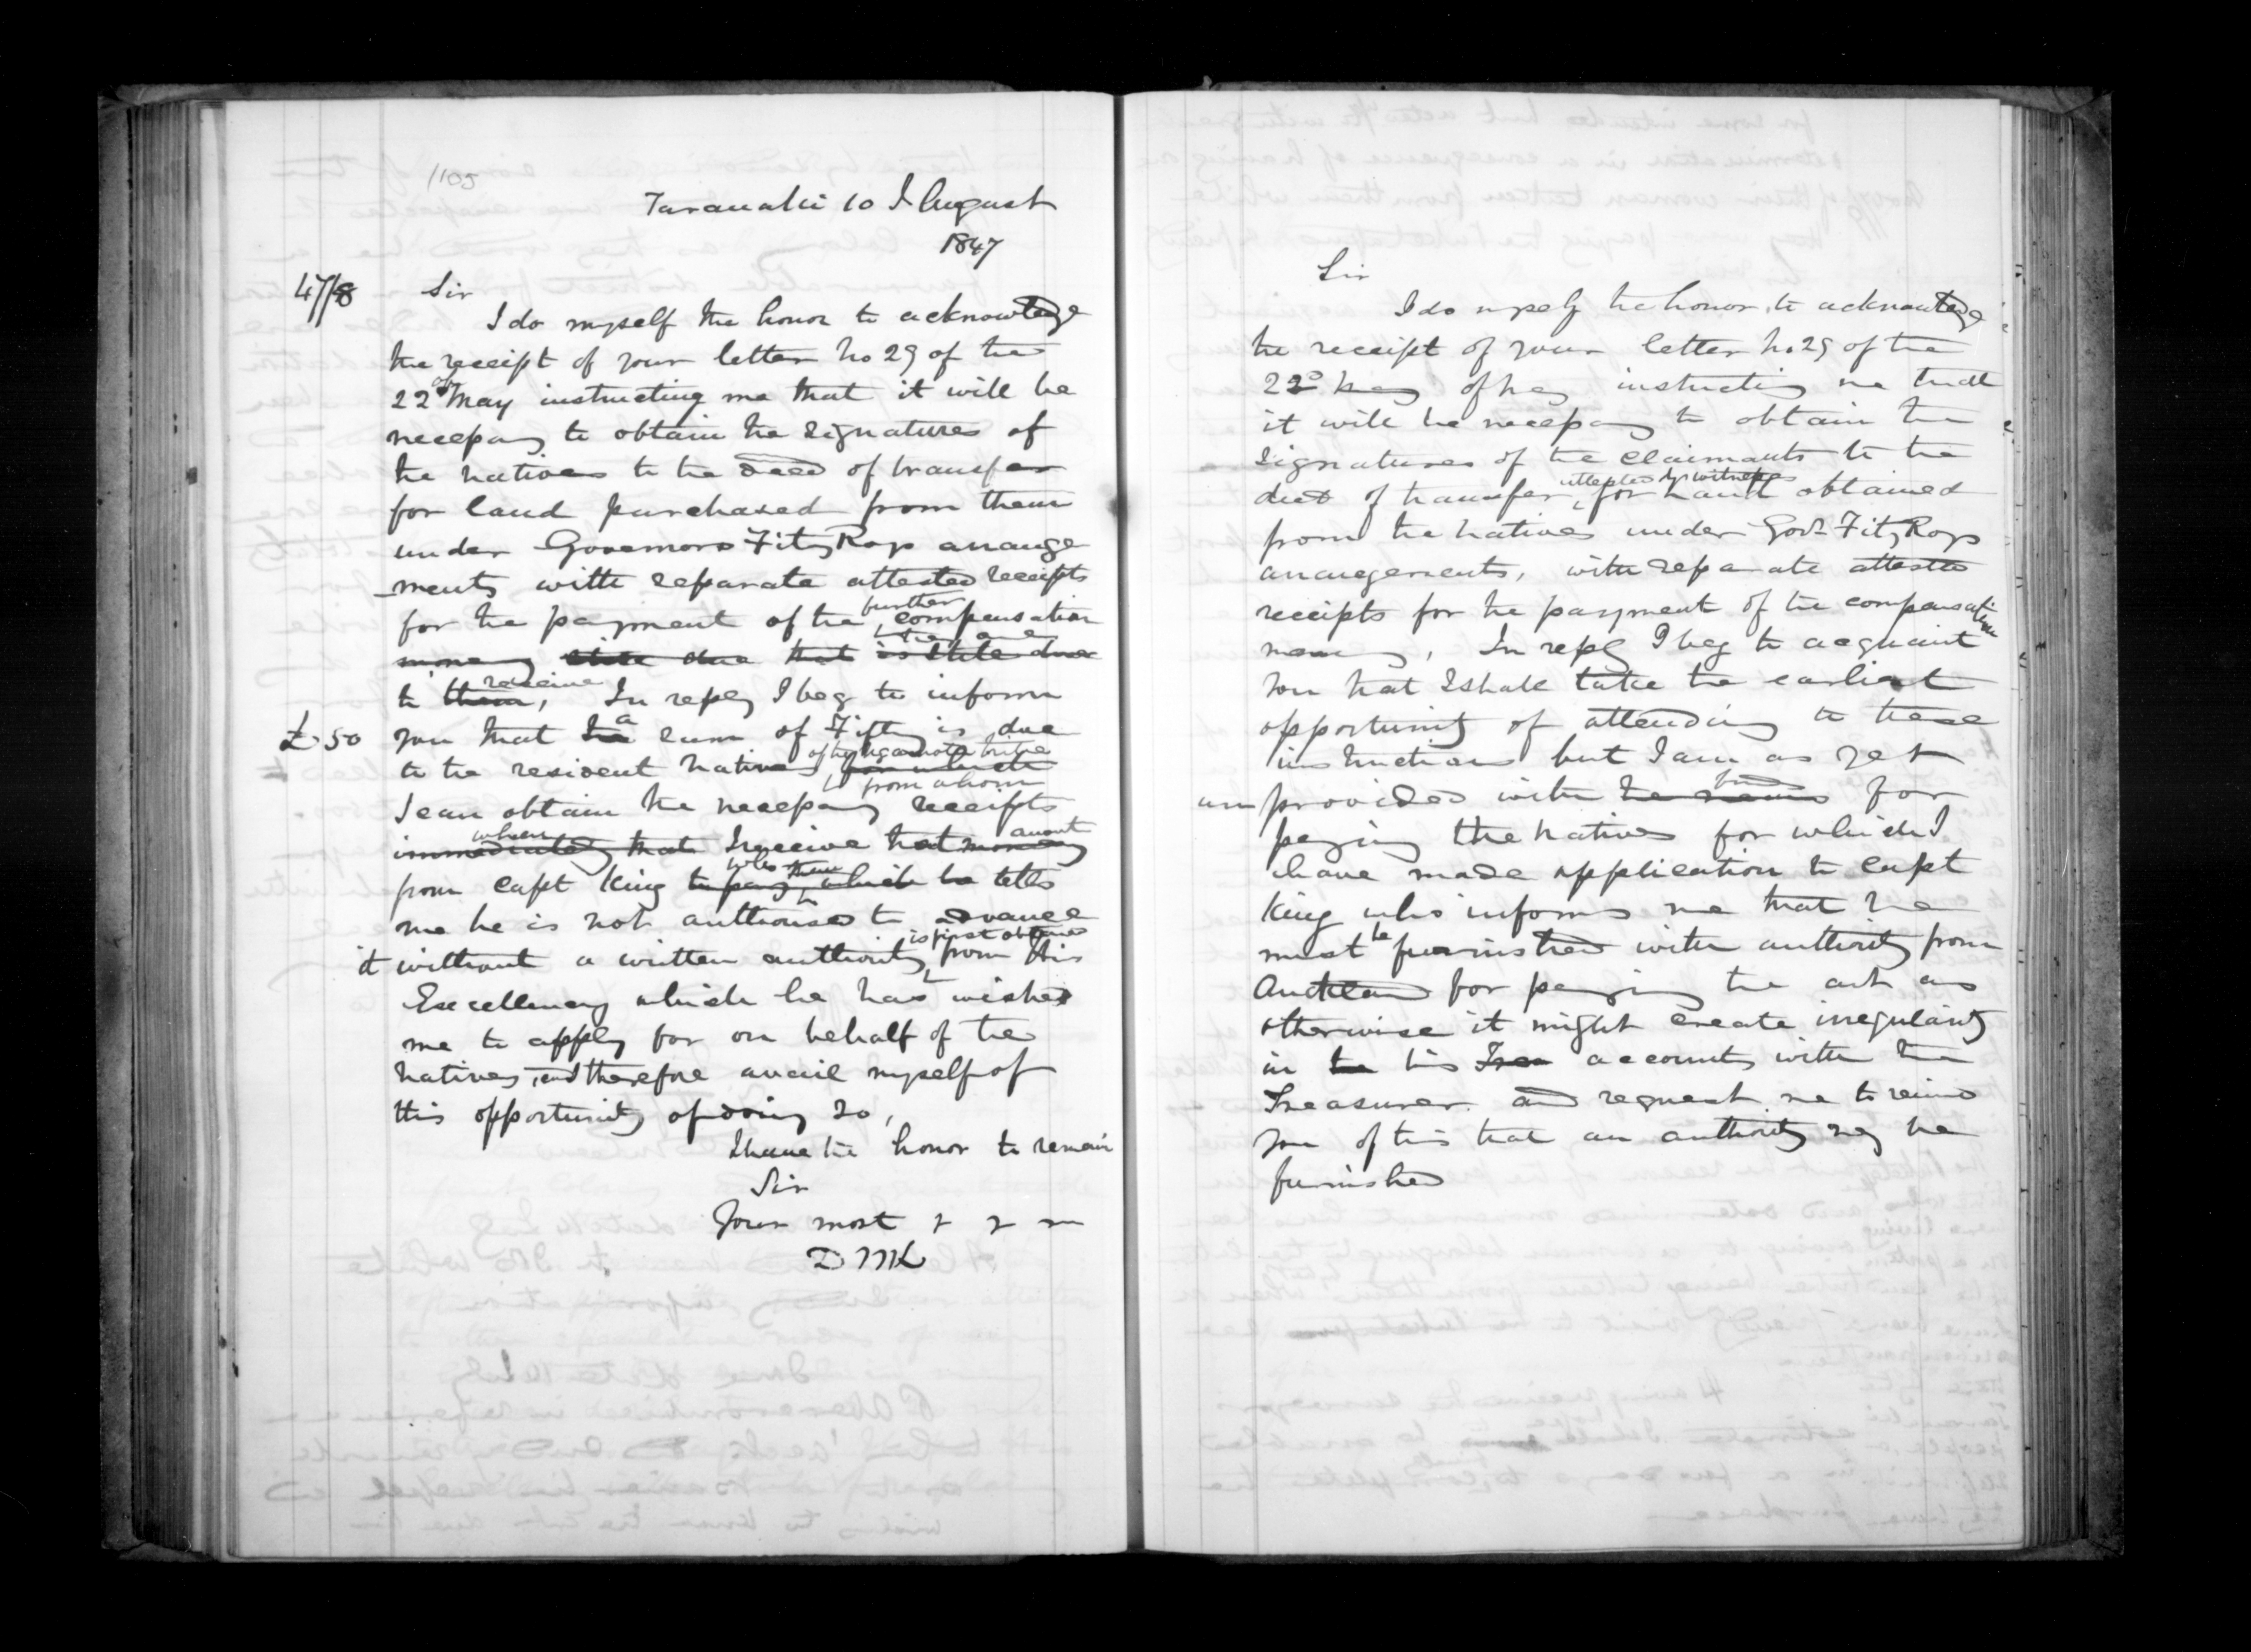 1105
Taranaki 10 August
1847
47/8 Sir
I do myself the honor to acknowledge
the receipt of your letter no 29 of the
22 of May instructing me that it will be
necessary to obtain the signatures of
the natives to the deed of transfer
for land purchased from them
under Governors FitzRoys arrange
ments with separate attested receipts
further
for the payment of the compensation
money that is still due
receive
to them, In reply I beg to inform
a
£50 you that the sum of Fifty is due
of the
to the resident natives for which
from whom
I can obtain the necessary receipts
when amount
immediately that I receive that money
who
from Capt King to pay them, which he tells
me he is not authorised to advance
is first obtained
it without a written authority from His
Excellency which he has wished
me to apply for on behalf of the
natives, and therefore avail myself of
this opportunity of doing so,
I have the honor to remain
Sir
Your most
DMK
Sir
I do myself the honor to acknowledge
the receipt of your letter no 29 of the
22d of May instructing me that
it will be necessary to obtain the
signatures of the claimants to the
attested by witnesses
deed of transfer, for land obtained
from the natives under Govr FitzRoys
arrangements, with separate attested
receipts for the payment of the compensation
money, In reply I beg to acquaint
you that I shall take the earliest
opportunity of attending to these
instructions but I am as yet
funds
unprovided with the means for
paying the natives for which I
have made application to Capt
King who informs me that he
must be furnished with authority from
Auckland for paying the as
otherwise it might create irregularity
in the his Trea accounts with the
Treasurer and request me to remind
you of this that an authority may be
furnished